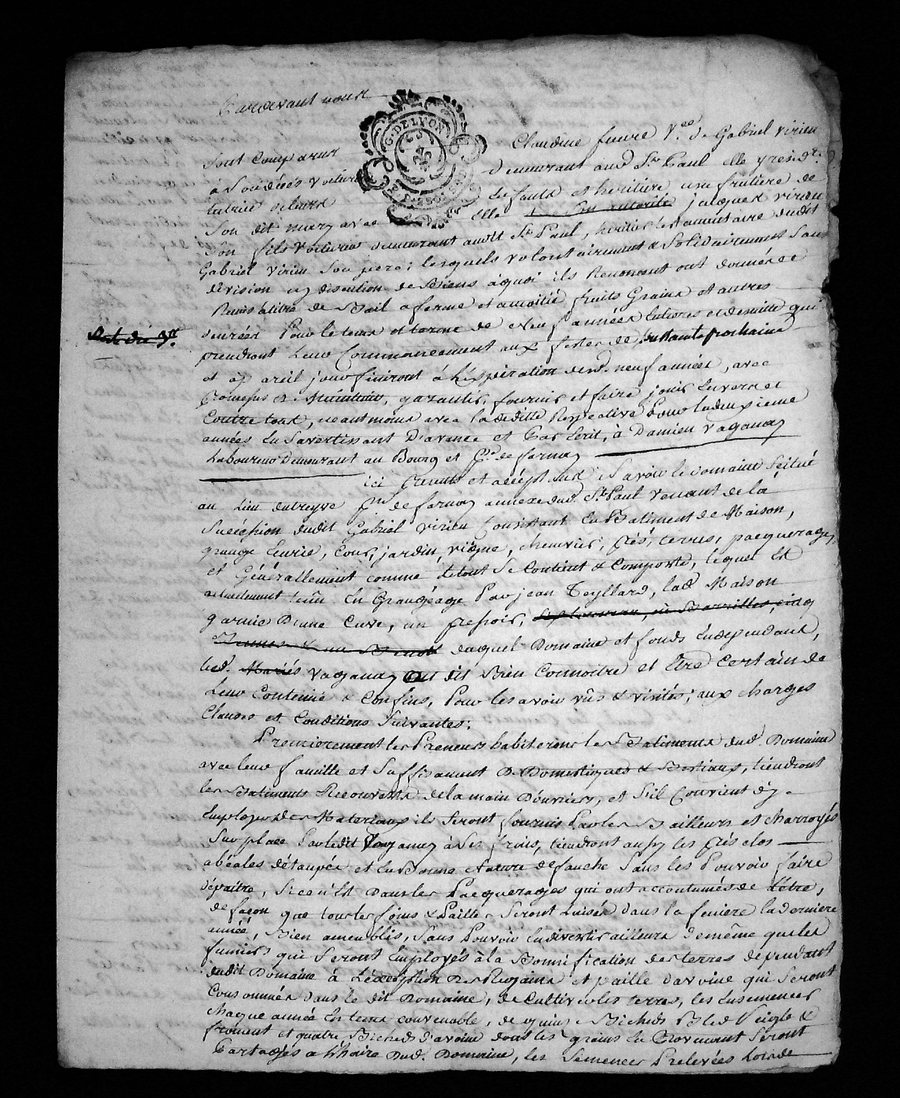 Pardevant nous
G. DE LYON
Sont Comparus Claudine favre V.ve de Gabriel virieu
à voiture demeurant aud St. Paul elle
et heritiere usufruitiere de
Son dit mary avec elle jacques virieu
Son fils voiturier demeurant audit St. Paul, heritier dudit
Gabriel virieu Son pere; lesquels volontairement & Solidairement Sans
division ny discution de Biens àquoi ils Renoncent ont donnés et
à titre de Bail a ferme et a moitié fruits Grains et autres
denrées Pour le tems et terme de neuf années entieres et de suitte qui
prendront leur Commancement aux festes de prochaine
et a pareil jour finiront à l'expiration desd. neuf années, avec
Promesse de maintenir, garantir, fournir et faire jouir Envers et
Contre tous, neantmoins avec la deditte Respective Pour
années En S'avertissant D'avance et Par Ecrit, à Damien vaganay
Laboureur Demeurant au Bourg et P.sse de farnay
ici Present et acceptant; Savoir le Domaine Scitué
au Lieu P.sse de farnay annexe dud. St. Paul Venant de la
Succession dudit Gabriel Virieu Consistant En Batiment de Maison,
grange Ecurie, Cour, jardin, vigne, chenevier, prés, terres, pacquerages,
et Généralement comme le tout Se Contient & Comporte, lequel Est
actuellement tenu En Grangeage Par jean Teyllard, lad. Maison
garnie D'une Cuve, un pressoir,
duquel Domaine et fonds Independant,
led. Mariés vaganay dit Bien Connoitre et Etre Certain de
Leur Contenue & Confins, Pour les avoir vûs & visités; aux charges
Clauses et Conditions Suivantes:
Premierement les Preneurs habiterons les Batiments dud. Domaine
avec leur famille et Suffisament de Domestiques & Bestiaux, tiendront
les Batiments Recouverts de la main D'ouvrier, et S'il Convient d'y
Employer des Materiaux ils Seront fournis Par les Bailleurs et charroyés
Sur place Par ledit vaganay à Ses frais, tiendront aussy les Prés clos
et En Bonne Nature de fauche Sans les Pouvoir faire
dépaitre, Si ce n'Est Dans les Pacquerages qui ont accoutumés de l'être,
de façon que tous les foins & Pailles Seront Laissés dans la feniere la derniere
année, Bien ameublis, Sans Pouvoir En divertir ailleurs de même que les
fumiers qui Seront Employés à la Bonnification des terres dependant
dudit Domaine à L'exception des et paille d'avoine qui Seront
Consommés dans le dit Domaine, de Cultiver les terres, les Ensemencer
Chaque année En tems convenable, de Bichets Bled Seigle &
froment et quatre Bichets d'avoine dont les grains En Provenant Seront
Partagés à l'haire Dud. Domaine, les Semences Prelevées